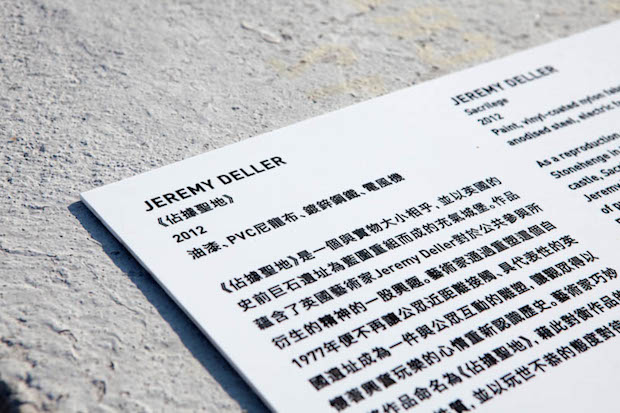 JEREMY DELLER
《佔據聖地》
2012
油漆、PVC尼龍布、鍍鋅鋼鐵、電風機
《佔據聖地》是一個與實物大小相乎，並以英國的
史前巨石遺址為藍圖重組而成的充氣城堡。作品
蘊含了英國藝術家Jeremy Deller對於公共參與所
衍生的精神的一股興趣。藝術家通過重塑這個自
1977年便不再讓公眾近距離接觸、具代表性的英
國遺址成為一件與公眾互動的雕塑，讓觀眾得以
懷著興奮玩樂的心情重新認識歷史。藝術家巧妙
將作品命名為《佔據聖地》，藉此對衝作品的
質，並以玩世不恭的態度對
JEREMY DELLER
Sacrilege
2012
Paint, vinyl-coated nylon
anodised steel, electric
As a reproduction
Stonehenge in
castle, Sac
Jeremy
of